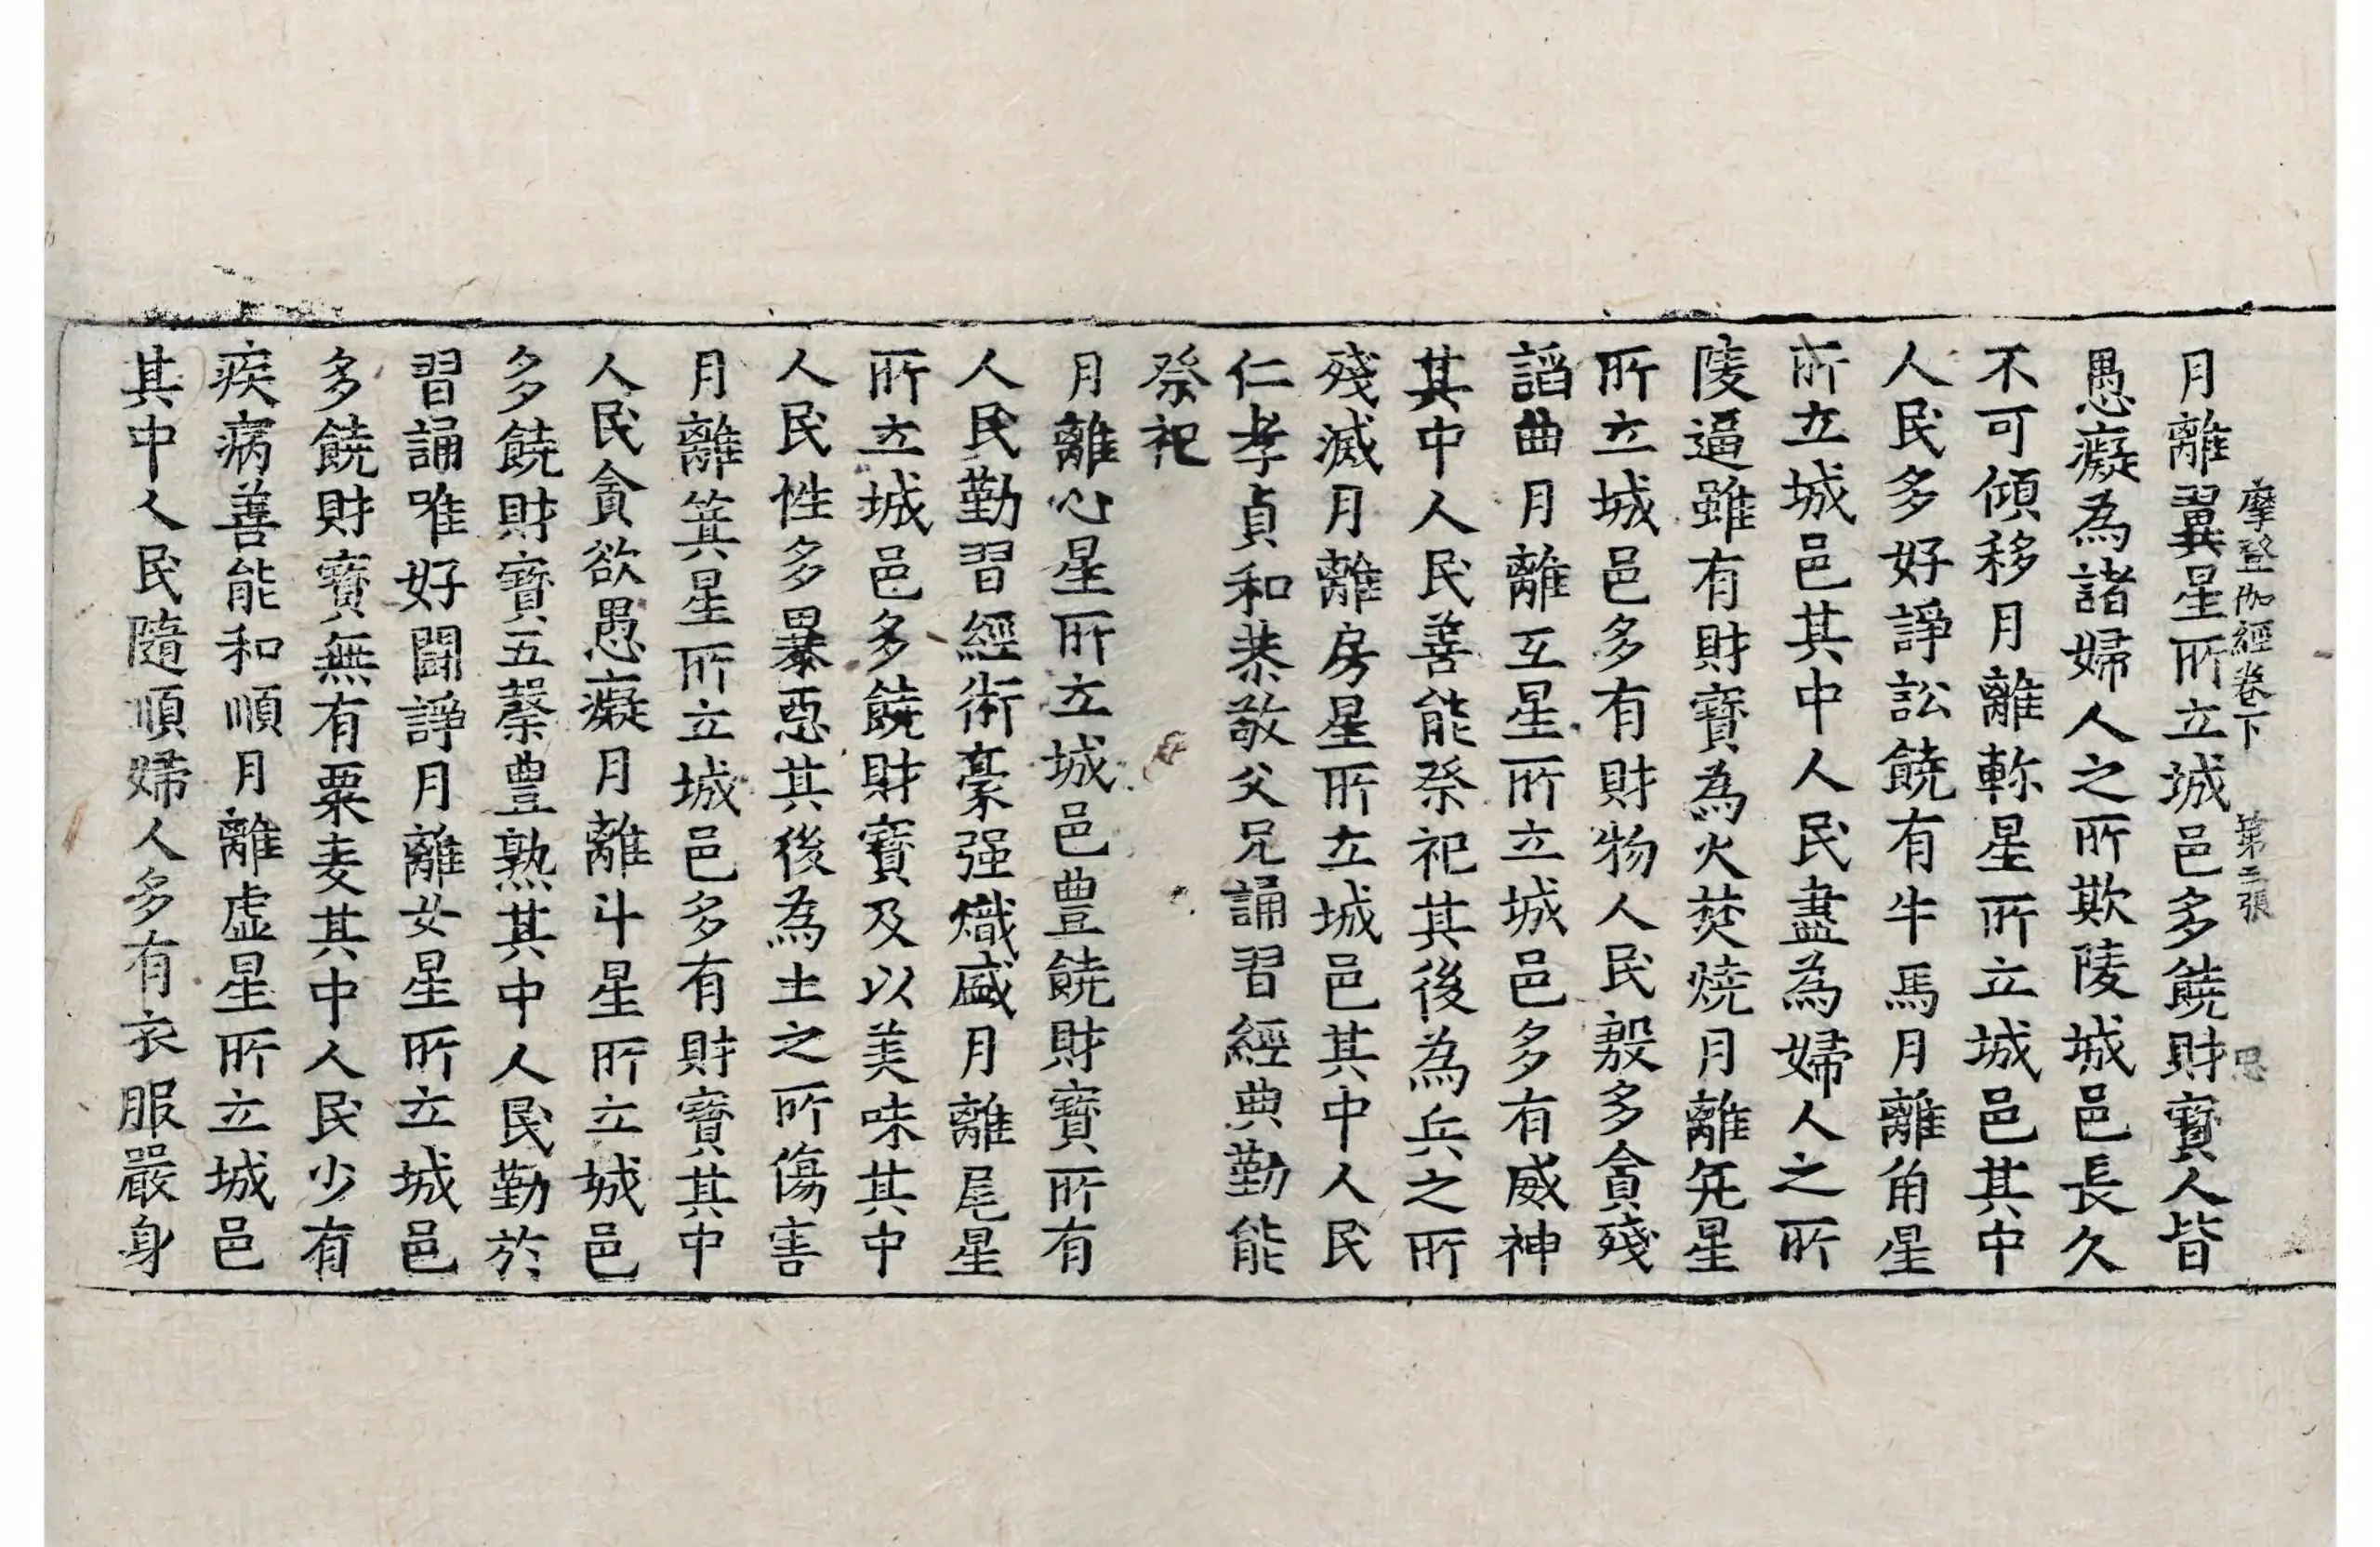 摩登伽經卷下　第二張　思
月離翼星所立城邑多饒財寶人皆
愚癡為諸婦人之所欺陵城邑長久
不可傾移月離軫星所立城邑其中
人民多好諍訟饒有牛馬月離角星
所立城邑其中人民盡為婦人之所
陵逼雖有財寶為火焚燒月離亢星
所立城邑多有財物人民慤多貪殘
諂曲月離互星所立城邑多有威神
其中人民善能祭祀其後為兵之所
殘滅月離房星所立城邑其中人民
仁孝貞和恭敬父兄誦習經典勤能
祭祀
月離心星所立城邑豊饒財寶所有
人民勤習經術豪强熾盛月離尾星
所立城邑多饒財寶及以美味其中
人民性多暴惡其後為土之所傷害
月離箕星所立城邑多有財寶其中
人民貪欲愚癡月離斗星所立城邑
多饒財寶五糓豊熟其中人民勤於
習誦唯好鬪諍月離女星所立城邑
多饒財寶無有粟麦其中人民少有
疾病善能和順月離虛星所立城邑
其中人民隨順婦人多有衣服嚴身